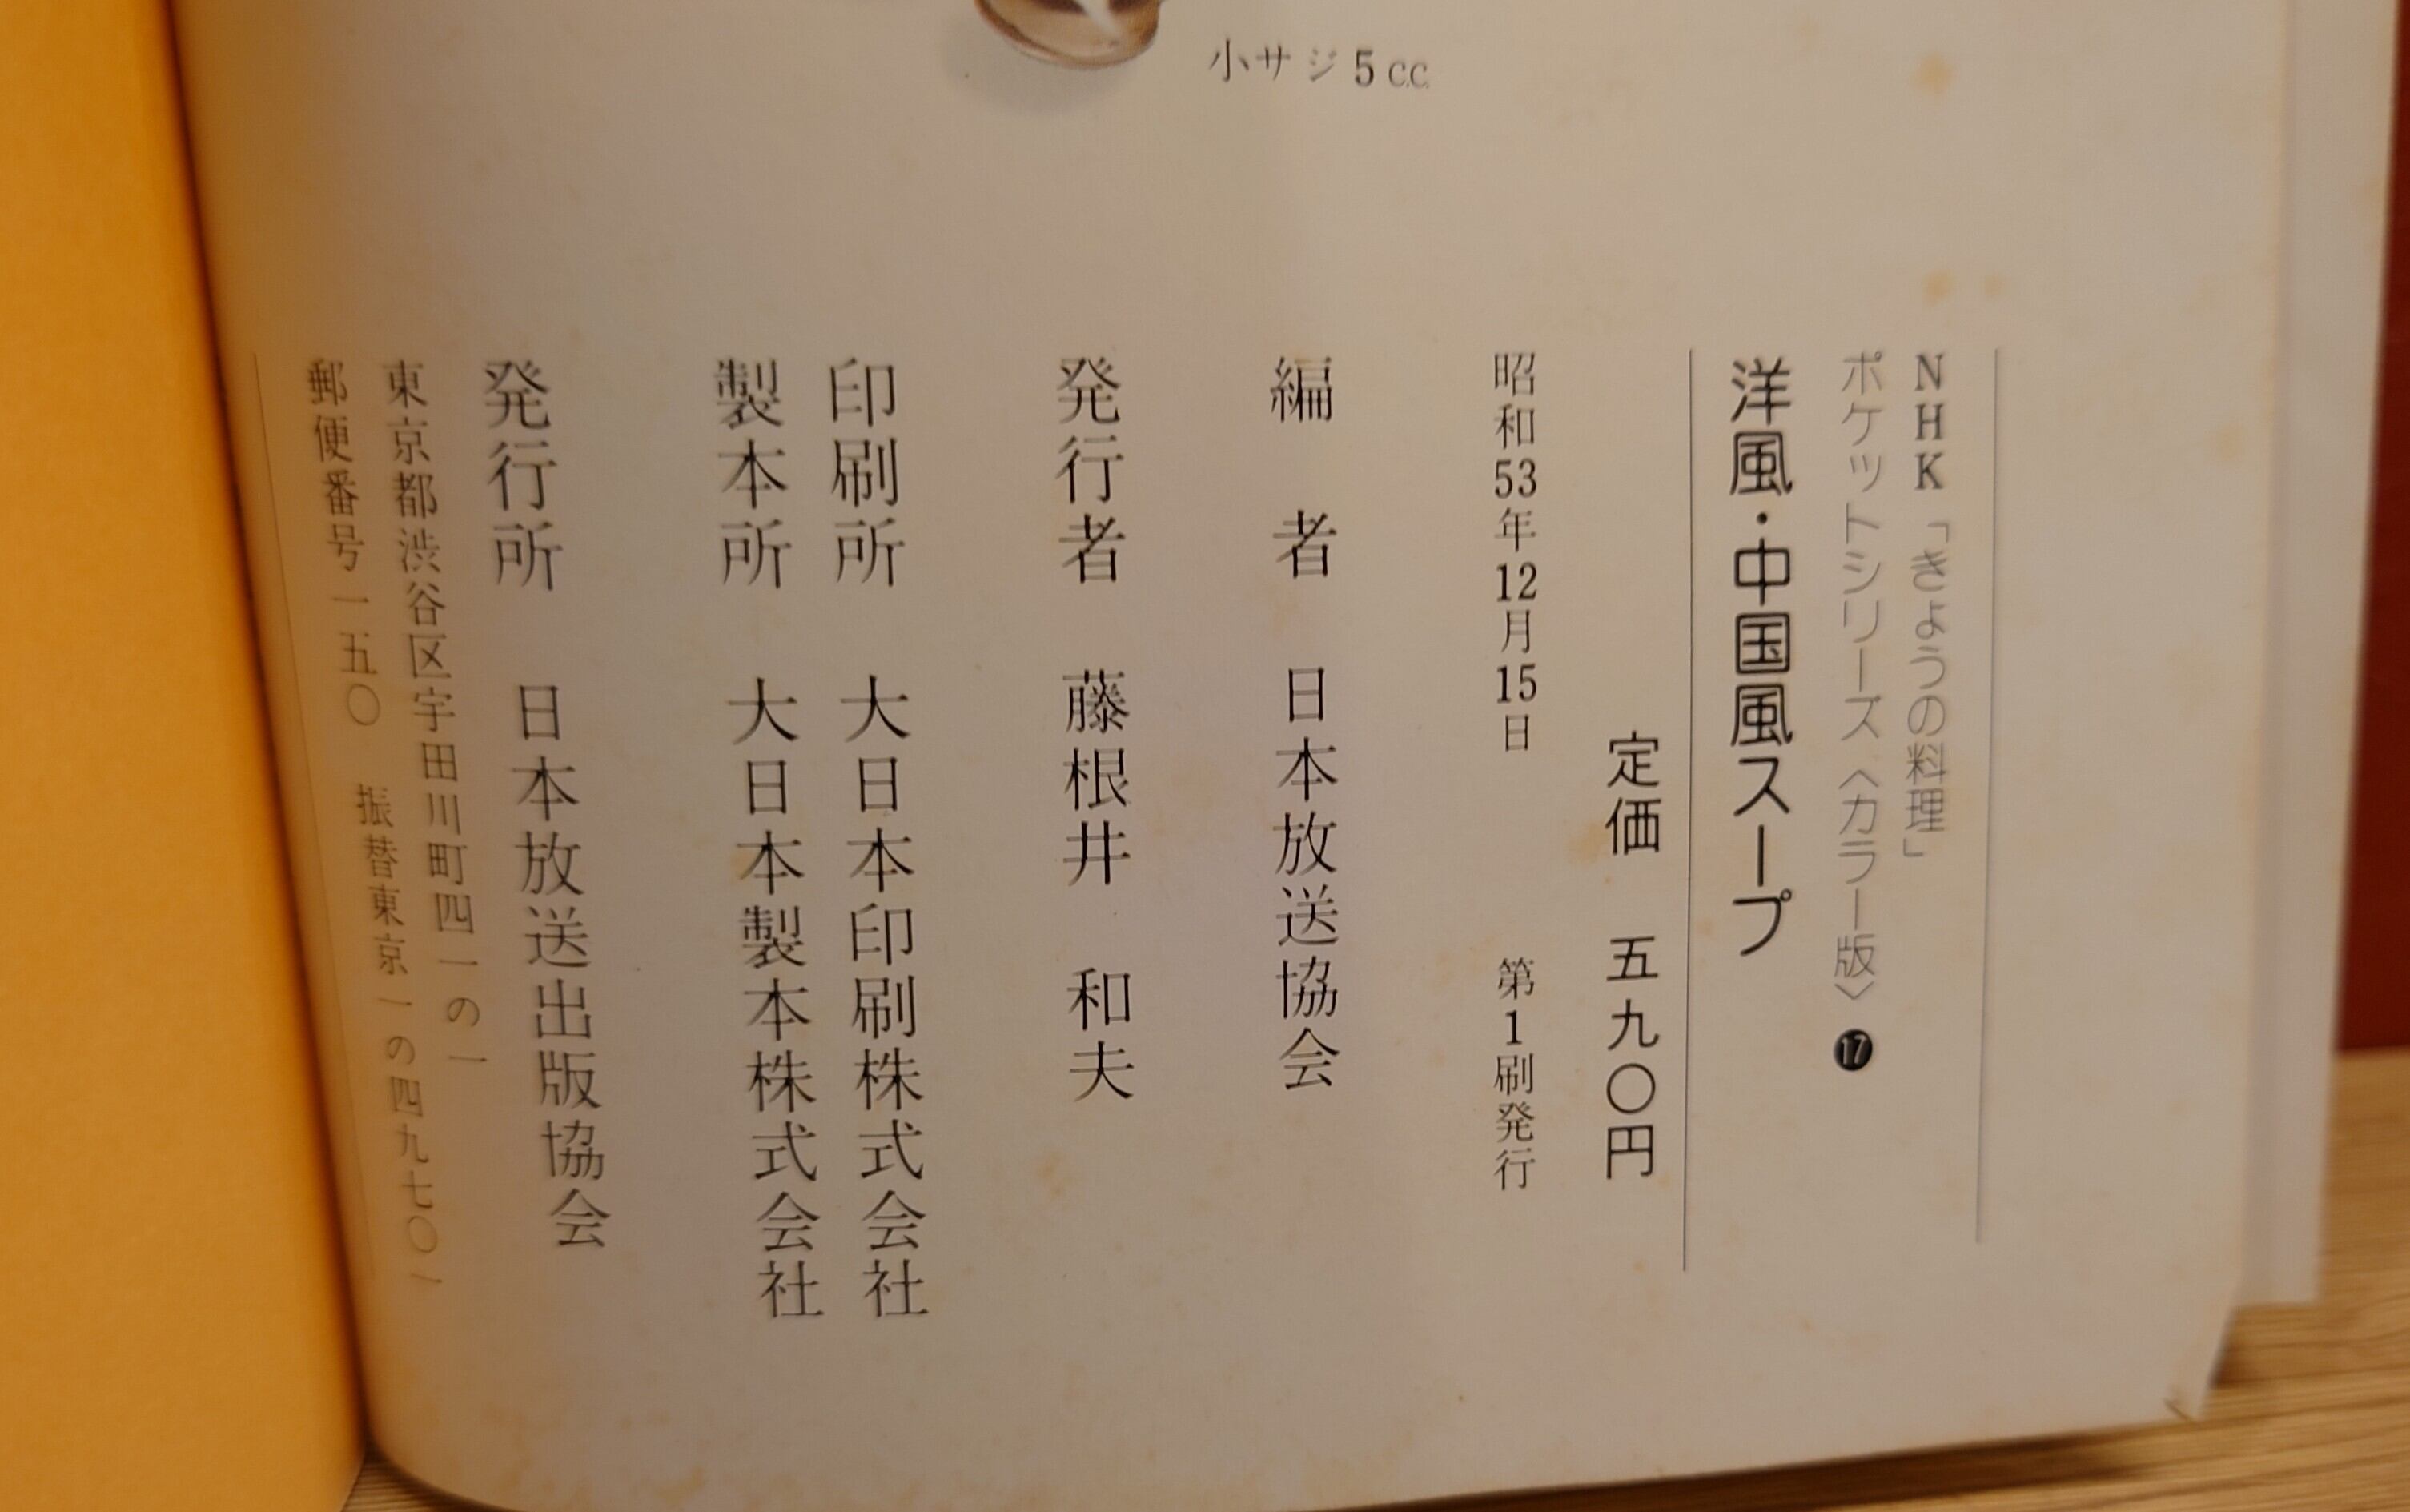 小サジ5cc.
NHK「きょうの料理」
ポケットシリーズ〈カラー版〉⓱
洋風・中国風スープ
定価 五九〇円
昭和53年12月15日 第1刷発行
編者 日本放送協会
発行者 藤根井 和夫
印刷所 大日本印刷株式会社
製本所 大日本製本株式会社
発行所 日本放送出版協会
東京都渋谷区宇田川町四一の一
郵便番号一五〇 振替東京一の四九七〇一